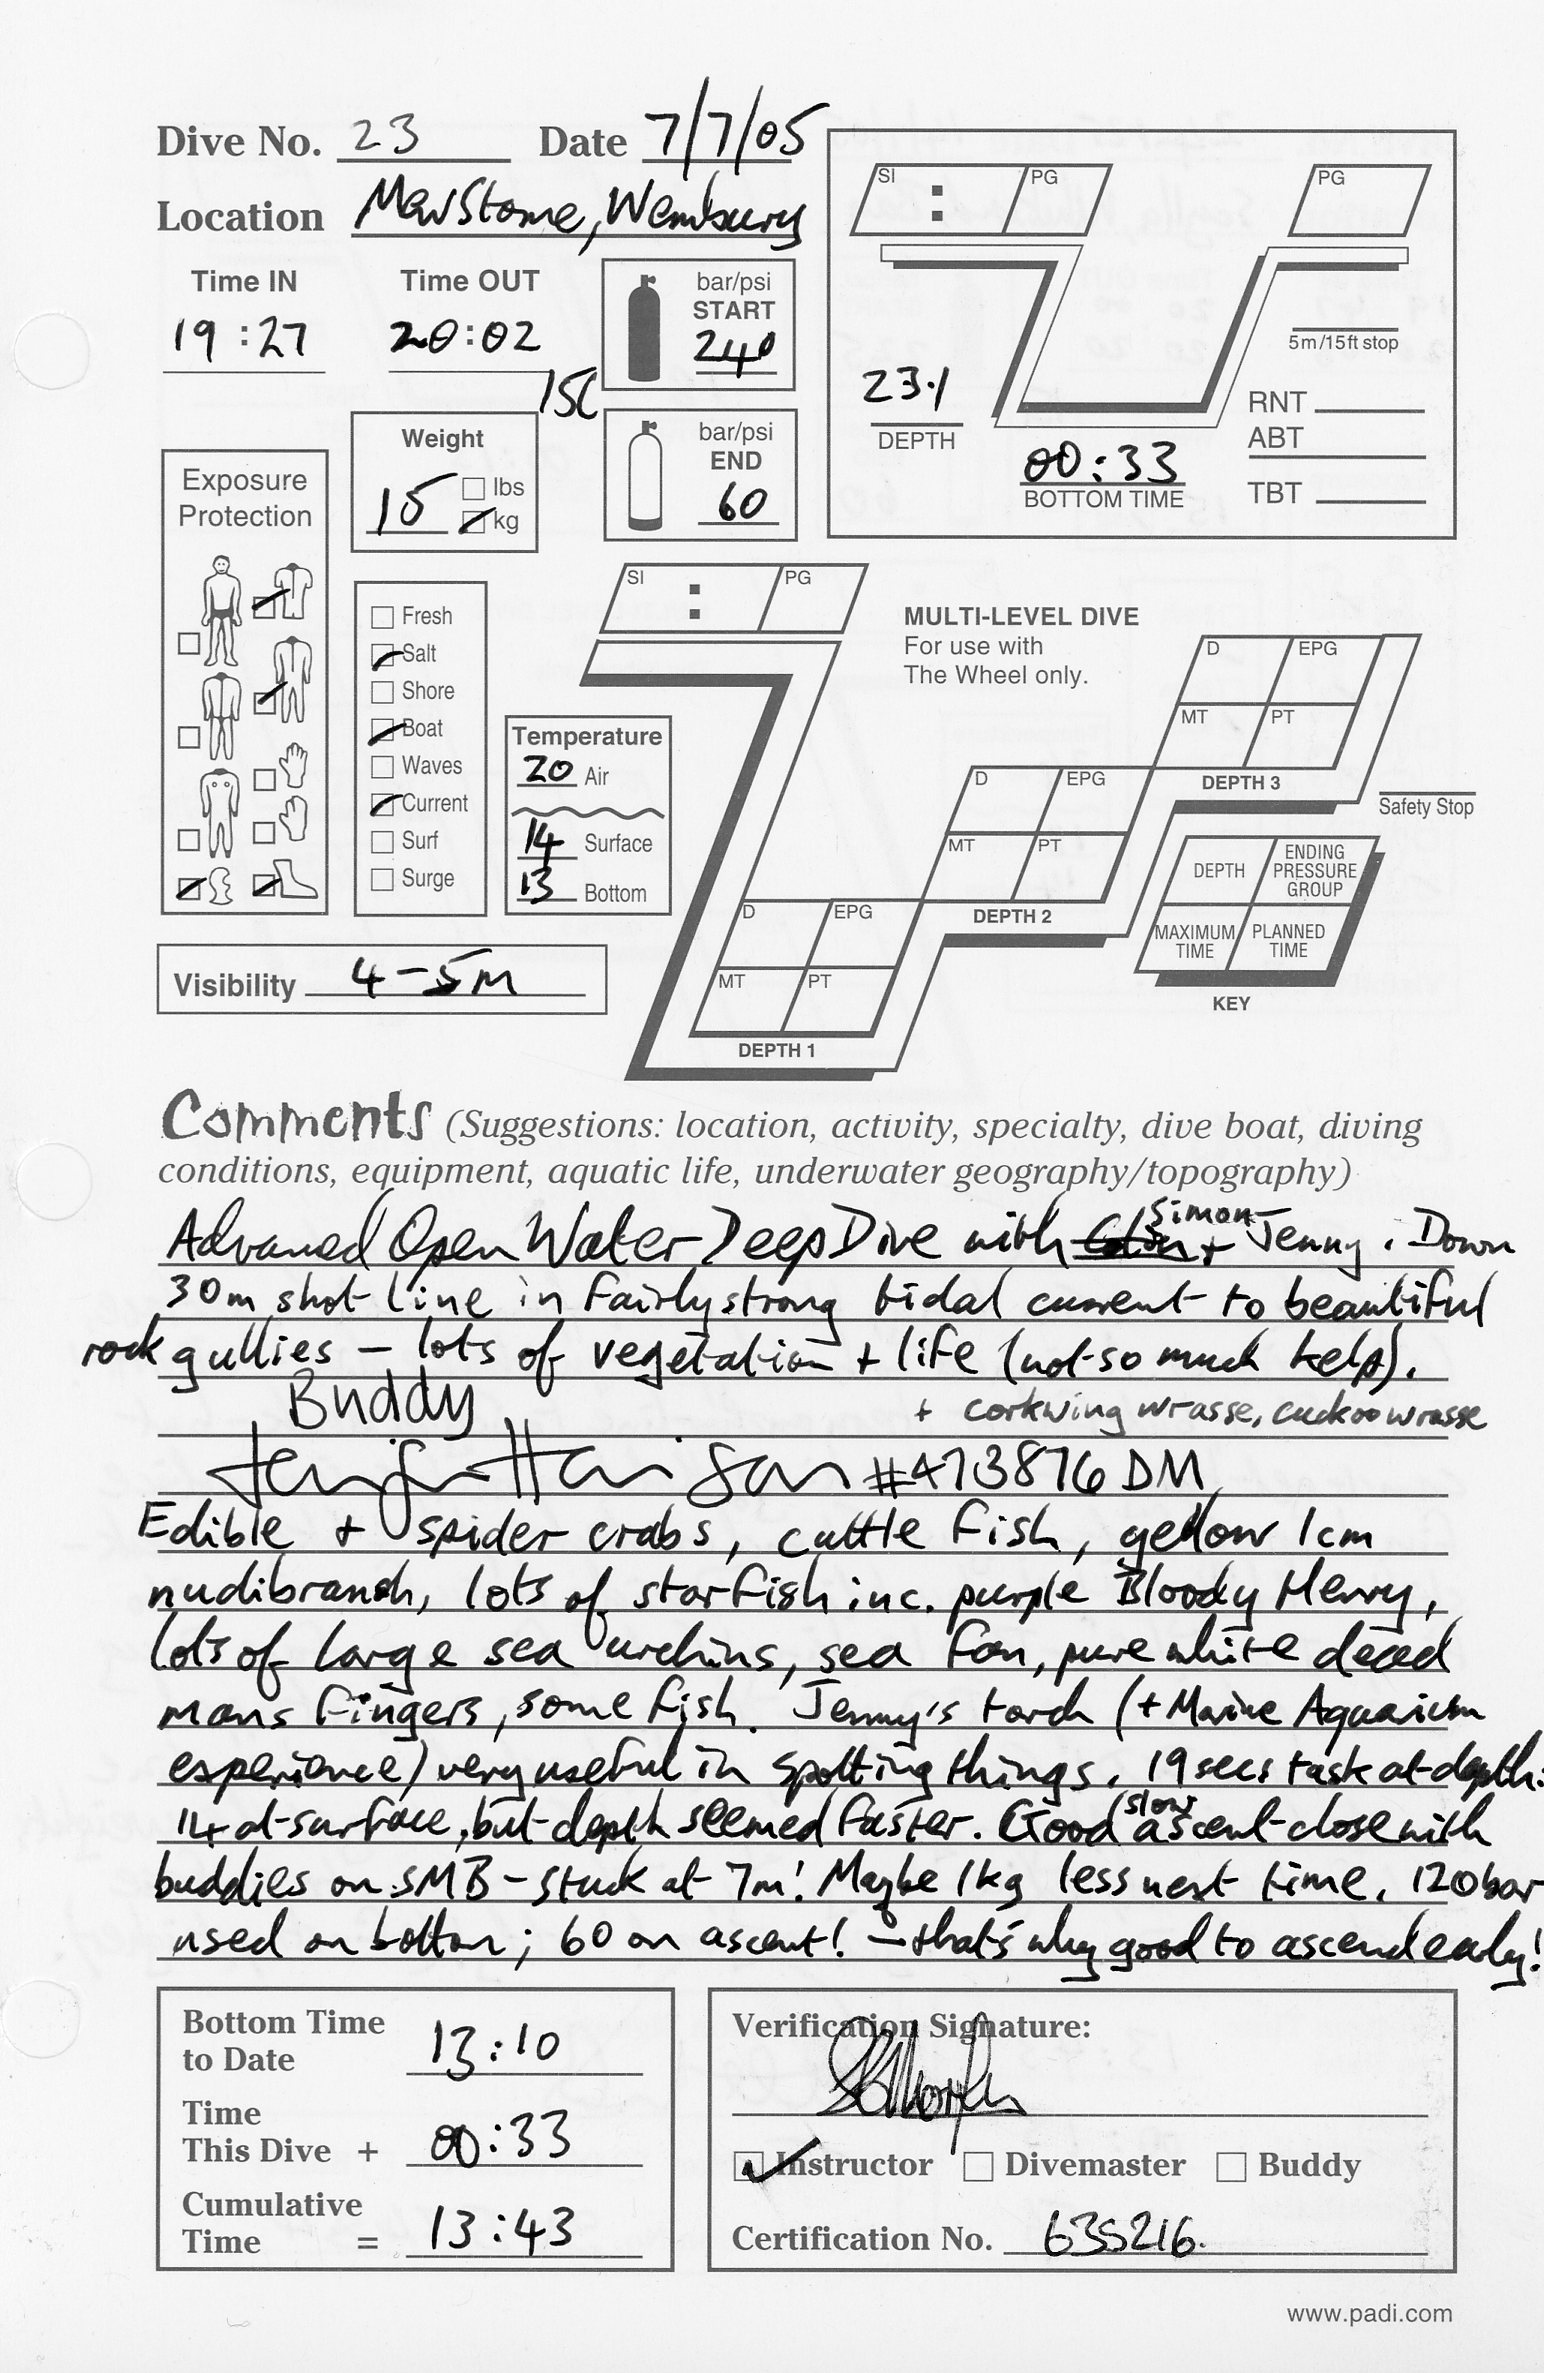 Dive No. 23 Date 7/7/05
Location Mewstone, Wembury
Time IN Time OUT
19:27 20:02
bar/psi
START
240
15l
bar/psi
END
60
Weight
15 lbs
kg
SI : PG
PG
5m/15ft stop
23.1
DEPTH
00:33
BOTTOM TIME
RNT
ABT
TBT
Exposure
Protection
Fresh
Salt
Shore
Boat
Waves
Current
Surf
Surge
Temperature
20 Air
14 Surface
13 Bottom
Visibility 4-5m
SI : PG
MULTI-LEVEL DIVE
For use with
The Wheel only.
D EPG
MT PT
DEPTH 1
D EPG
MT PT
DEPTH 2
D EPG
MT PT
DEPTH 3
Safety Stop
DEPTH
ENDING
PRESSURE
GROUP
MAXIMUM
TIME
PLANNED
TIME
KEY
Comments (Suggestions: location, activity, specialty, dive boat, diving
conditions, equipment, aquatic life, underwater geography/topography)
Advanced Open Water Deep Dive with Simon + Jenny. Down
30m shot line in fairly strong tidal current to beautiful
rock gullies – lots of vegetation + life (not so much kelp).
Buddy
+ corkwing wrasse, cuckoo wrasse
#473876 DM
Edible + spider crabs, cuttle fish, yellow 1cm
nudibranch, lots of starfish inc. purple Bloody Henry,
lots of large sea urchins, sea fan, pure white dead
mans fingers, some fish. Jenny's torch (+ Marine Aquarium
experience) very useful in spotting things. 19 secs task at depth:
14 at surface, but depth seemed faster. Good slow ascent close with
buddies on SMB – stuck at 7m! Maybe 1kg less next time. 120bar
used on bottom; 60 on ascent! – that's why good to ascend early!
Bottom Time
to Date 13:10
Time
This Dive + 00:33
Cumulative
Time = 13:43
Verification Signature:
Instructor Divemaster Buddy
Certification No. 635216.
www.padi.com